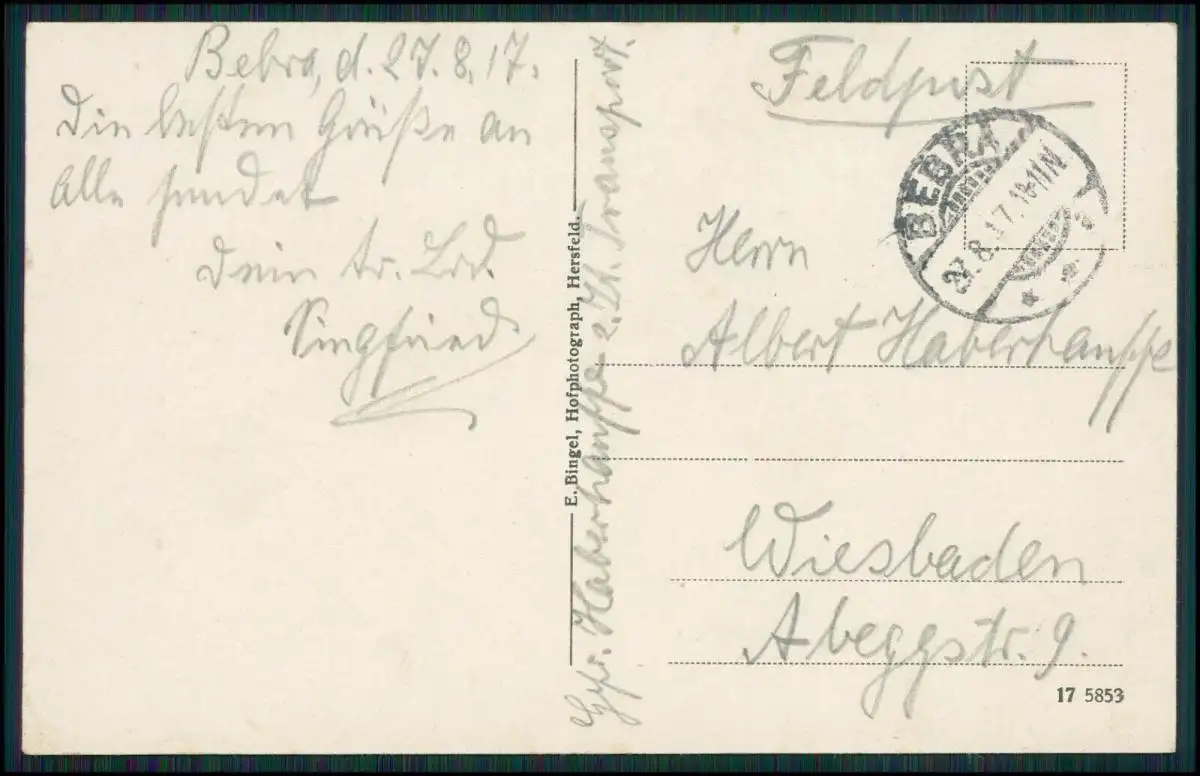 Bebra, d. 27.8.17.
Die besten Grüße an
Alle sendet
Dein tr. Brd.
Siegfried
E. Bingel, Hofphotograph, Hersfeld.
Haberhauffe z. Zt. Transport.
Feldpost
BEBRA
27.8.17.10-11N
Herrn
Albert Haberhauffe
Wiesbaden
Abeggstr. 9.
17 5853